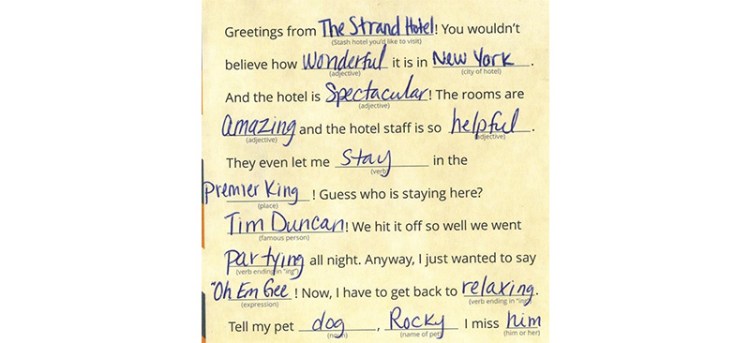 Greetings from The Strand Hotel! You wouldn't
(Stash hotel you'd like to visit)
believe how Wonderful it is in New York.
(adjective) (city of hotel)
And the hotel is Spectacular! The rooms are
(adjective)
amazing and the hotel staff is so helpful.
(adjective) (adjective)
They even let me Stay in the
(verb)
Premier King! Guess who is staying here?
(place)
Tim Duncan! We hit it off so well we went
(famous person)
partying all night. Anyway, I just wanted to say
(verb ending in "ing")
"Oh Em Gee! Now, I have to get back to relaxing.
(expression) (verb ending in "ing")
Tell my pet dog, Rocky I miss him
(noun) (name of pet) (him or her)